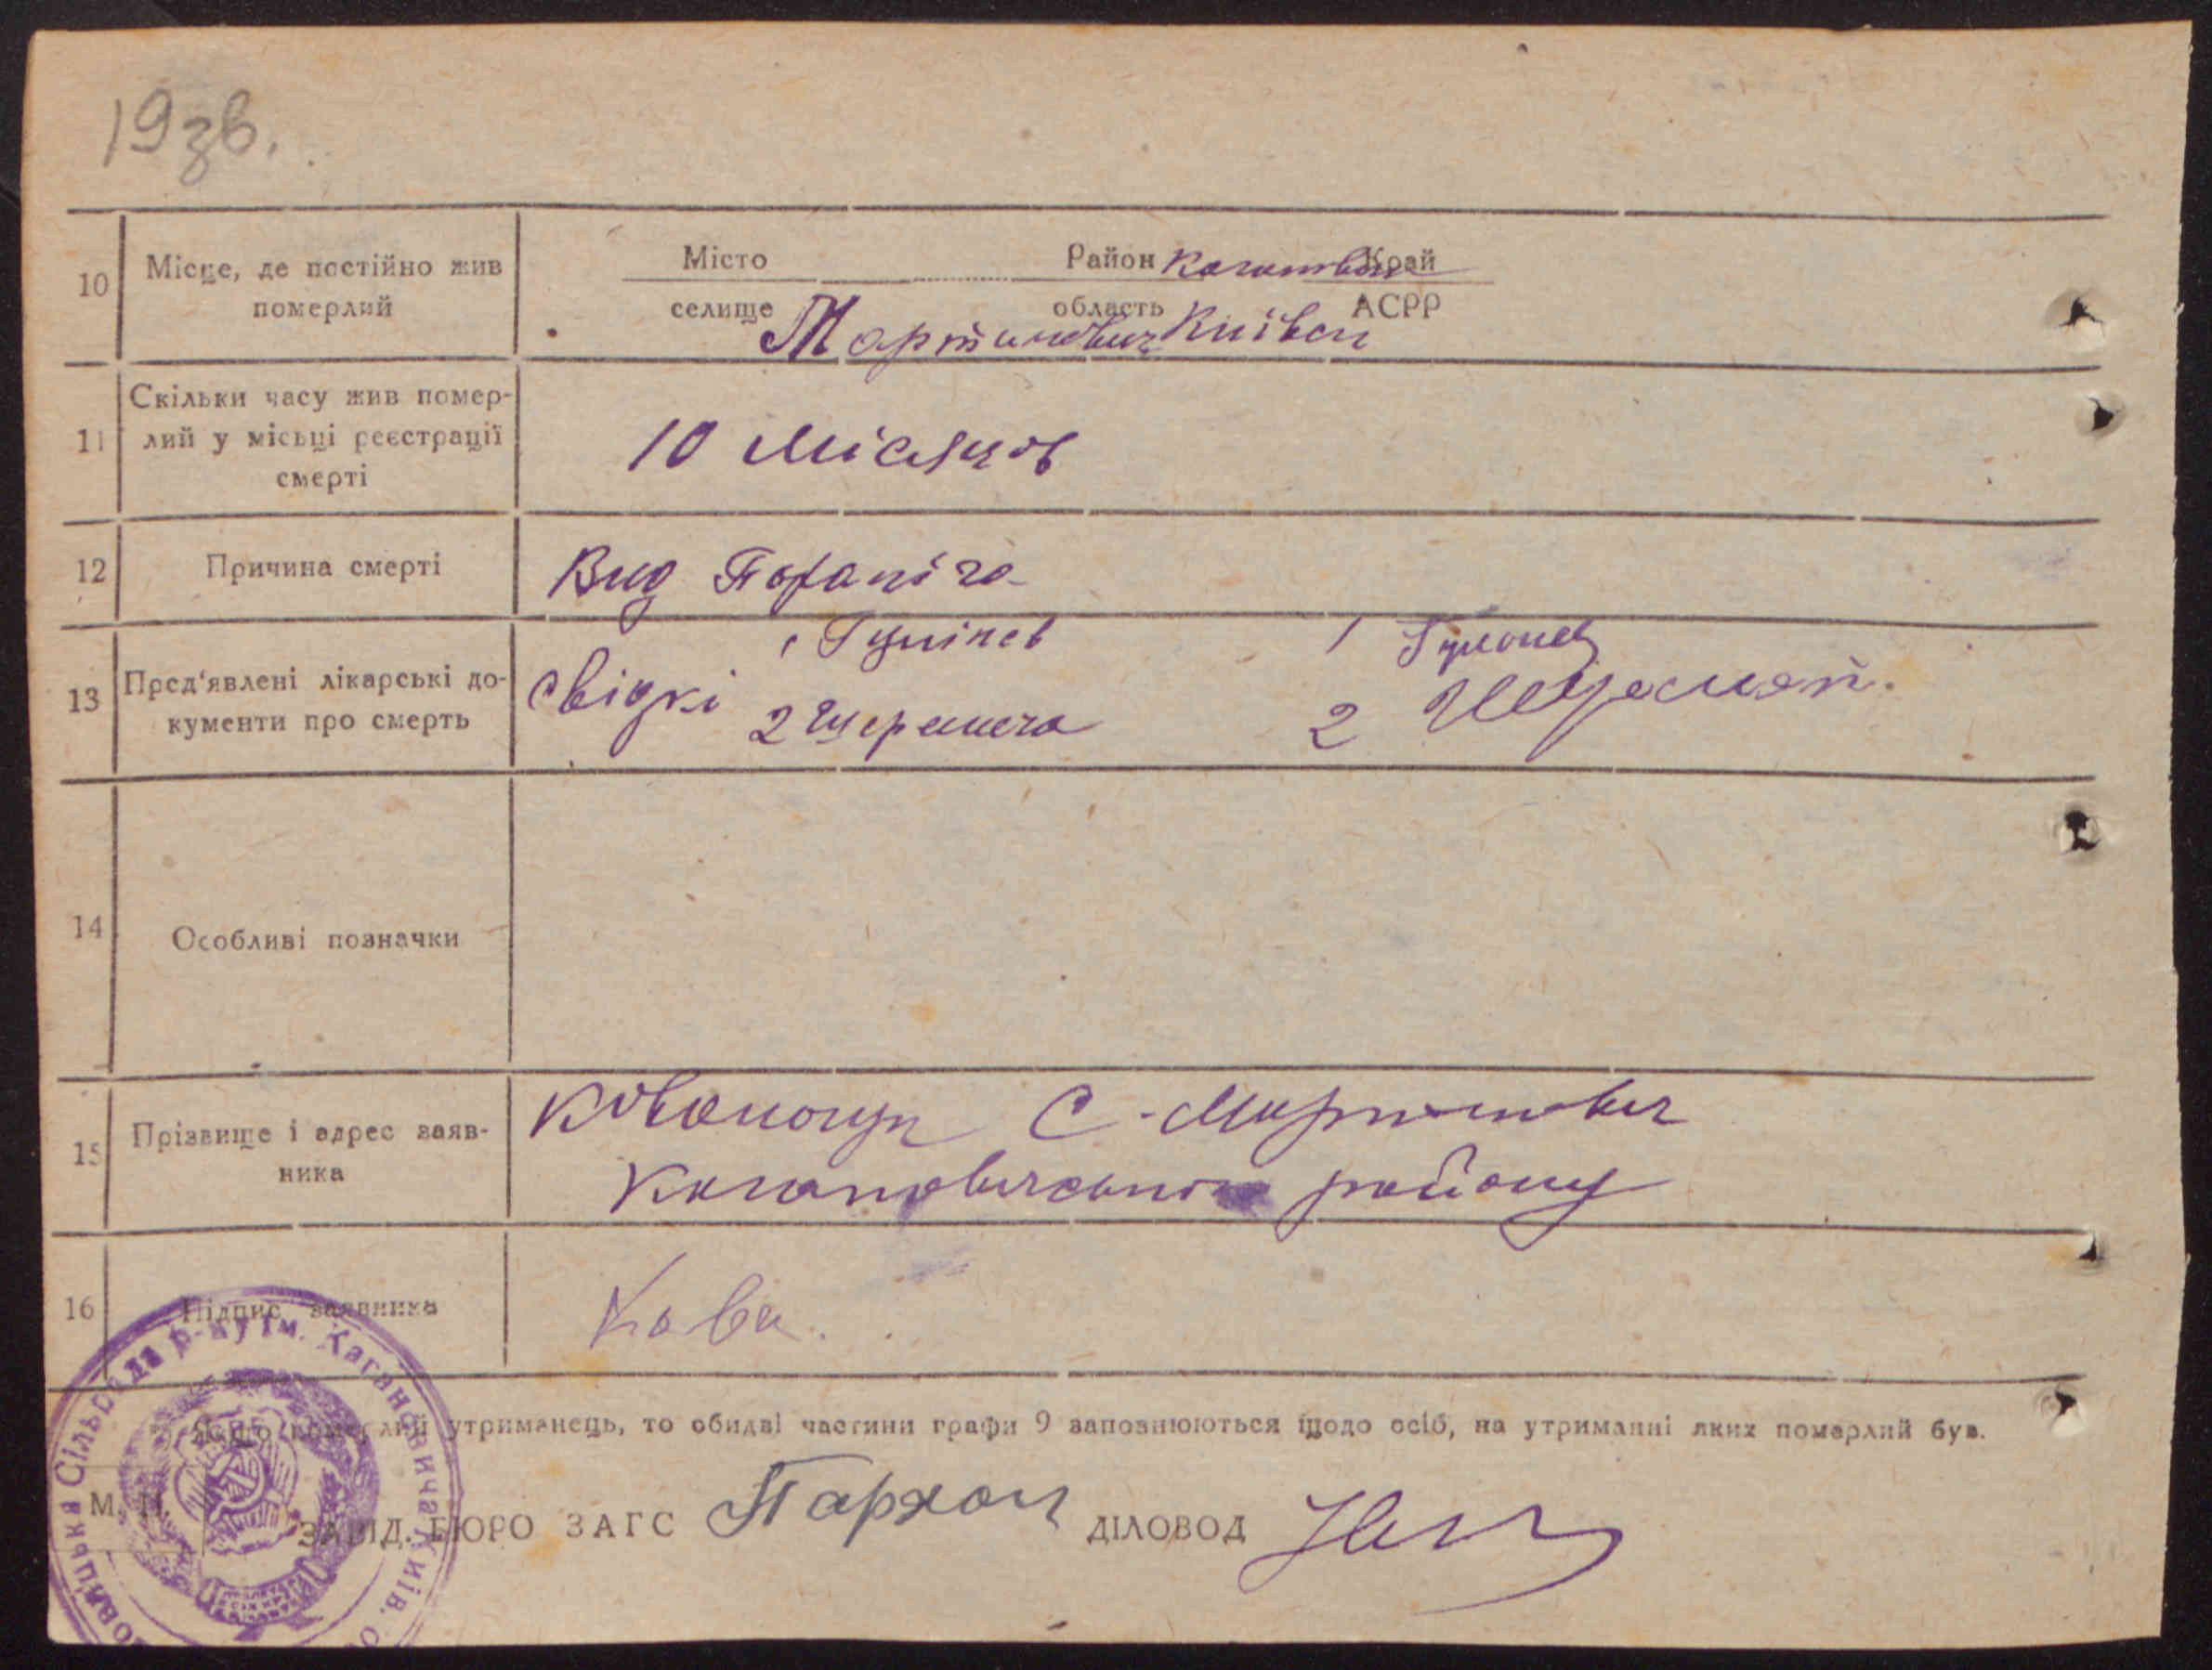 19зв.
10 Місце, де постійно жив померлий
Місто Район Край
селище область АСРР
Мартинович Київськ
11 Скільки часу жив помер-
лий у місьці реєстрації
смерті
10 місяцов
12 Причина смерті
Вид
13 Пред'явлені лікарські до-
кументи про смерть
свідкі 1 1
2 2
14 Особливі позначки
15 Прізвище і адрес заяв-
ника
С-Мартинович
Кагановичського району
16 Підпис заявника
Кова.
Якщо померлий утриманець, то обидві частини графи 9 заповнюються щодо осіб, на утриманні яких померлий був.
М. П.
ЗАВІД. БЮРО ЗАГС Пархом ДІЛОВОД
Сільрада р-ну ім. Кагановича Київ.